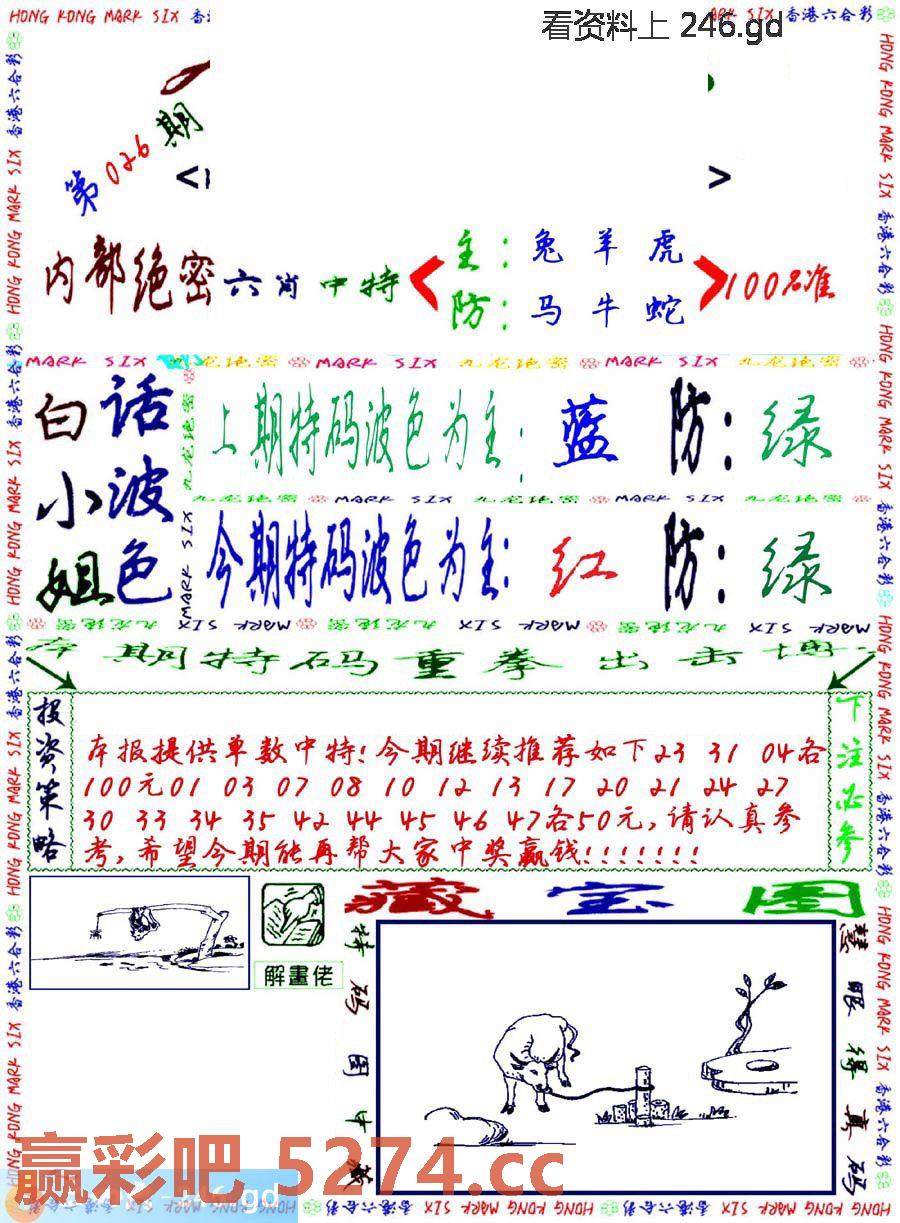 HONG KONG MARK SIX 香港六合彩
看资料上 246.gd
第026期
内部绝密六肖中特
主：兔羊虎
防：马牛蛇
100%准
MARK SIX 九龙绝密 MARK SIX 九龙绝密 MARK SIX 九龙绝密
白话小波姐色
上期特码波色为主：蓝 防：绿
九龙绝密 MARK SIX 九龙绝密 MARK SIX 九龙绝密
今期特码波色为主：红 防：绿
期特码重拳出击
投资策略
本报提供单数中特！今期继续推荐如下23 31 04各
100元01 03 07 08 10 12 13 17 20 21 24 27
30 33 34 35 42 44 45 46 47各50元，请认真参
考，希望今期能再帮大家中奖赢钱！！！！！！！
下注必参
藏宝图
解畫佬
特码图中
慧眼得真码
赢彩吧 5274.cc
246.gd